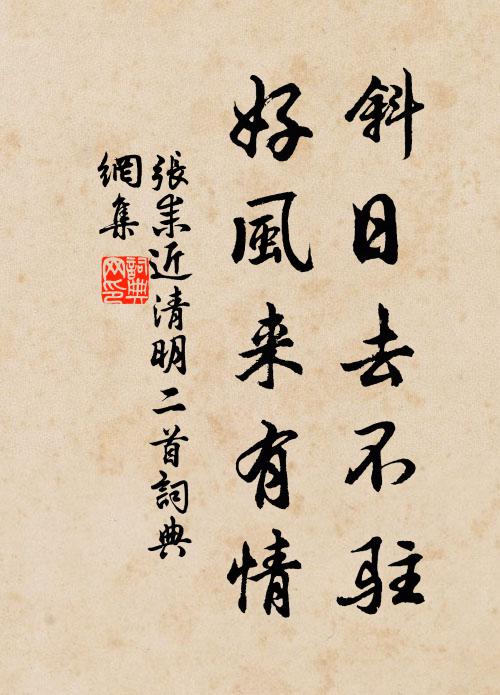 斜日去不駐
好風来有情
張耒近清明二首詞典
網集
詞典
網印